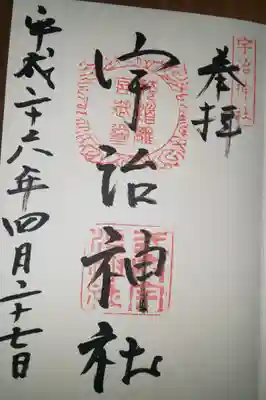 奉拝
宇治神社
宇治神社
平成二十六年四月二十七日